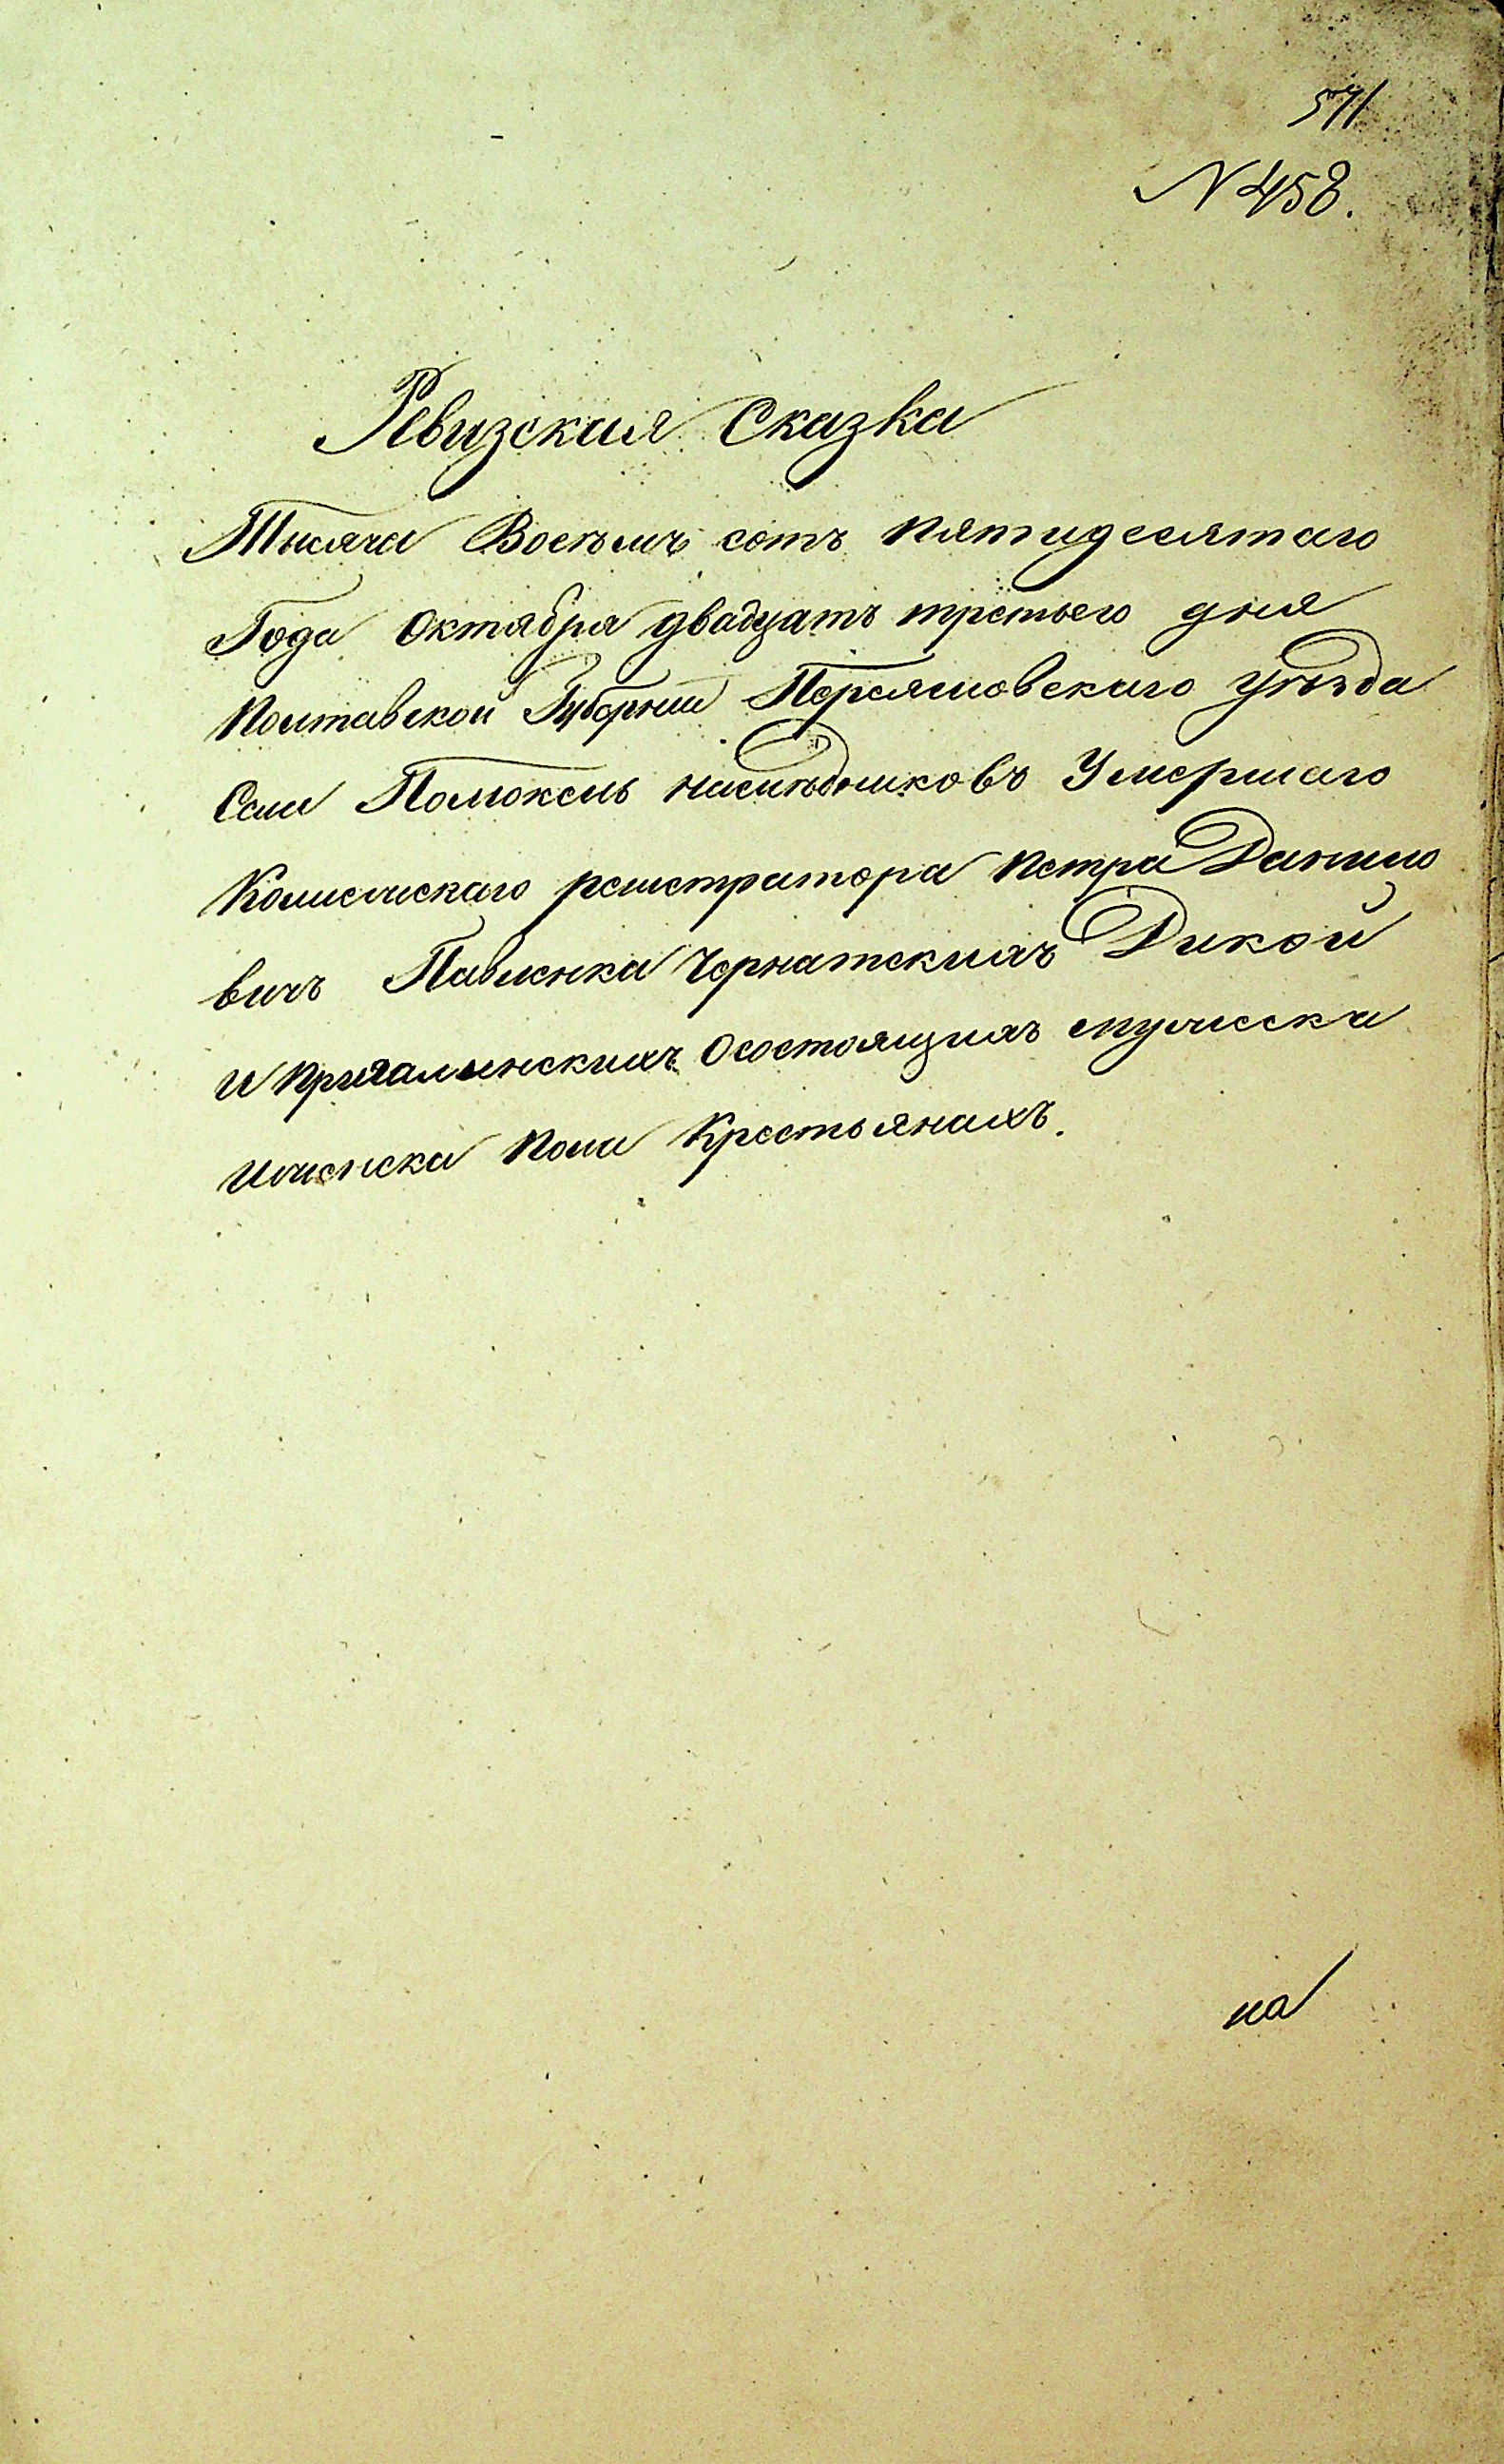 571
N 458.
Ревизская Сказка
Тысяча Восемь сотъ пятидесятаго
Года Октября двадцать третьего дня
Полтавской Губернии Переясловскаго уѣзда
Села Помоклъ наслѣдниковъ Умершаго
Колисскаго регистратора Петра Данило
вичъ Павленка Чернатскихъ Дикой
и Осостоящихъ мужеска
иженска пола Крестьянахъ.
на